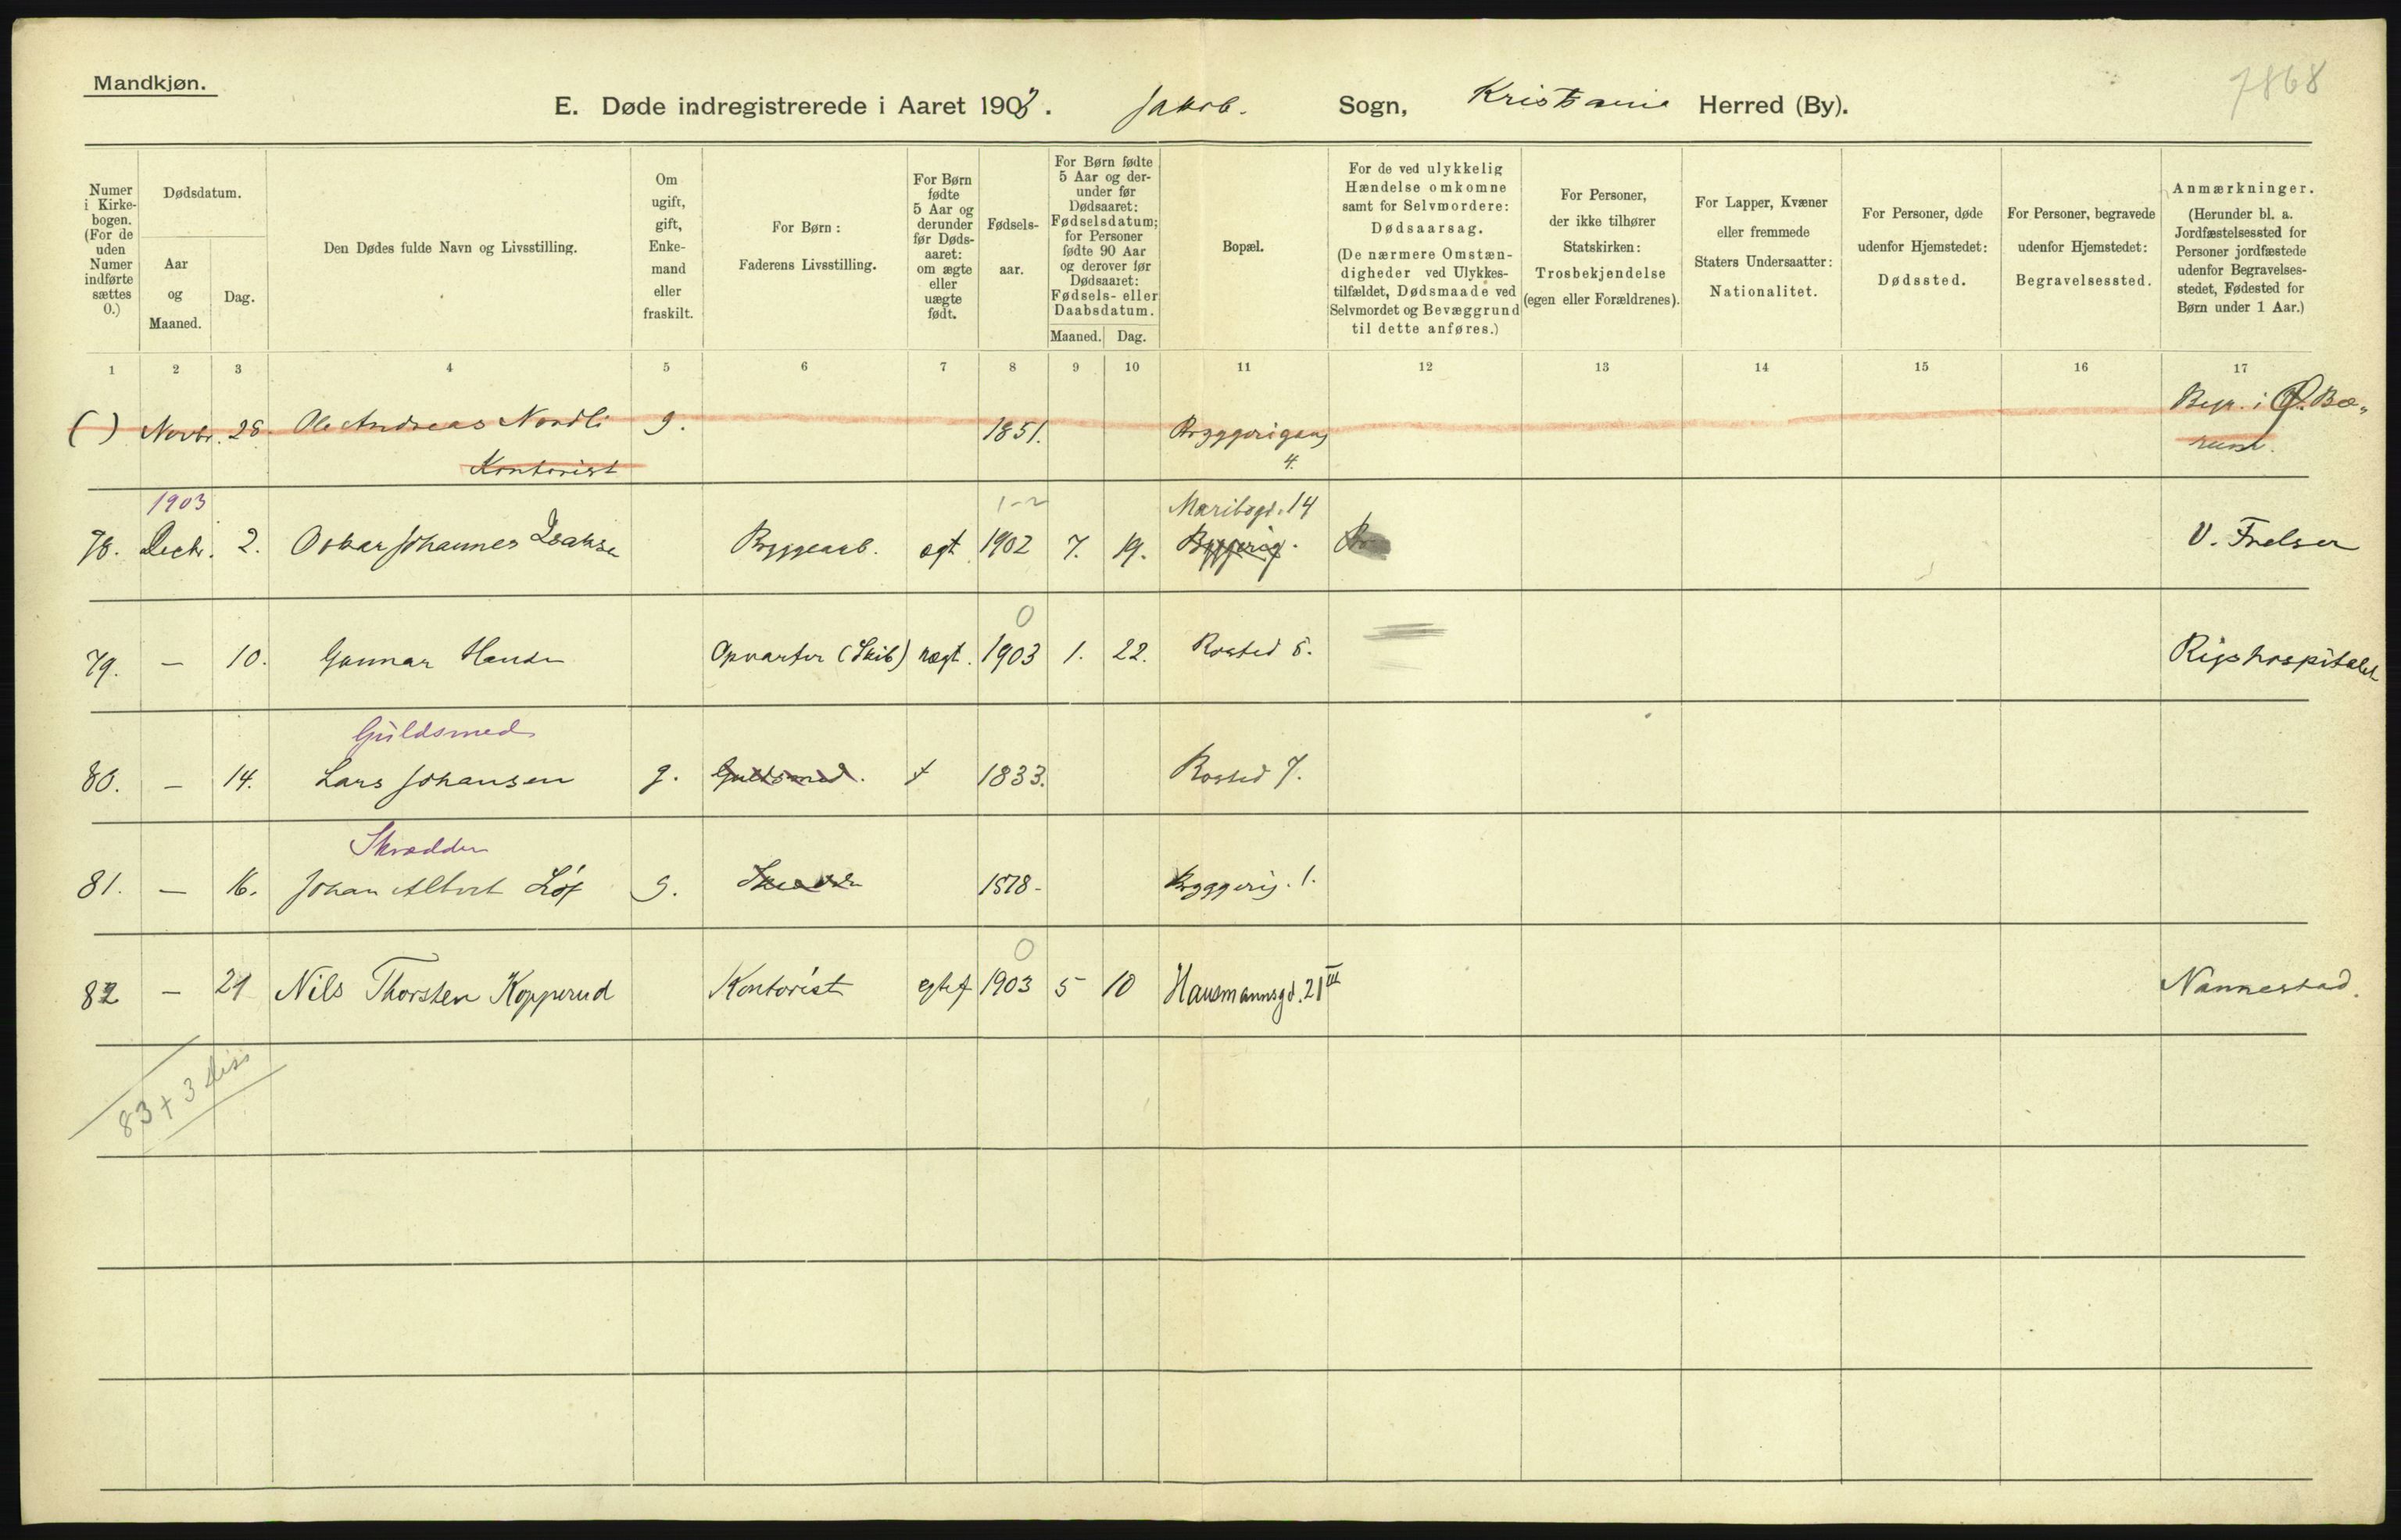 Mandkjøn.
7868
E. Døde indregistrerede i Aaret 1903. Jakob. Sogn, Kristiania Herred (By).
Numer i Kirke-bogen. (For de uden Numer indførte sættes 0.)
Dødsdatum.
Aar og Maaned.
Dag.
Den Dødes fulde Navn og Livsstilling.
Om ugift, gift, Enke-mand eller fraskilt.
For Børn: Faderens Livsstilling.
For Børn fødte 5 Aar og derunder før Døds-aaret: om ægte eller uægte født.
Fødsels-aar.
For Børn fødte 5 Aar og der-under før Dødsaaret: Fødselsdatum; for Personer fødte 90 Aar og derover før Dødsaaret: Fødsels- eller Daabsdatum.
Maaned. Dag.
Bopæl.
For de ved ulykkelig Hændelse omkomne samt for Selvmordere: Dødsaarsag. (De nærmere Omstæn-digheder ved Ulykkes-tilfældet, Dødsmaade ved Selvmordet og Bevæggrund til dette anføres.)
For Personer, der ikke tilhører Statskirken: Trosbekjendelse (egen eller Forældrenes).
For Lapper, Kvæner eller fremmede Staters Undersaatter: Nationalitet.
For Personer, døde udenfor Hjemstedet: Dødssted.
For Personer, begravede udenfor Hjemstedet: Begravelsessted.
Anmærkninger. (Herunder bl. a. Jordfæstelsessted for Personer jordfæstede udenfor Begravelses-stedet, Fødested for Børn under 1 Aar.)
1 2 3 4 5 6 7 8 9 10 11 12 13 14 15 16 17
( ) Novbr. 28. Ole Andreas Nordli g. 1851. Bryggerigang Begr. i Ø. Bæ-
Kontorist 4. rum.
1903 1-2 Maribogd. 14
78. Decbr. 2. Oskar Johannes Isaksen Byggearb. ægt 1902 7. 19. Bryggerig. V. Frelser
0
79. — 10. Gunnar Hansen Opvarter (Skib) uægt. 1903 1. 22. Rosted 5. Rigshospitalet
Guldsmed
80. — 14. Lars Johansen g. Guldsmed. 1833. Rosted 7.
Skrædder
81. — 16. Johan Albert Löf g. Skrædder 1878- Bryggerig. 1.
0
82 — 21 Nils Thorsten Kopperud Kontorist egtef 1903 5 10 Hausmannsgd. 21 III Nannestad.
83 + 3 diss